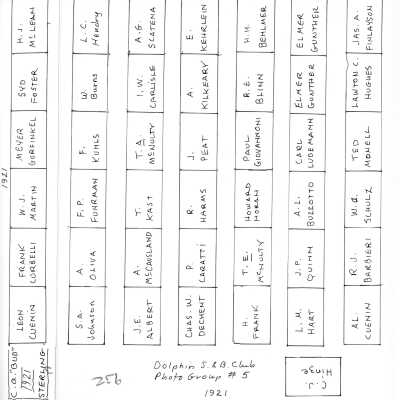 H. J.
McLEAN
SYD
FOSTER
MEYER
GORFINKEL
W. J.
MARTIN
FRANK
CORBELLI
LEON
CUENIN
C. A. "BUD"
1921
STERLING
L. C.
Hendry
W.
Burns
F.
KUHLS
F. P.
FUHRMAN
A.
OLIVA
S. A.
Johnson
A. G.
SCATENA
I. W.
CARLISLE
T. A.
McNULTY
T.
KAST
A.
McCAUSLAND
J. E.
ALBERT
E.
KEHRLEIN
A.
KILKEARY
J.
PEAT
R.
HARMS
P.
CARATTI
CHAS. W.
DECHENT
H. H.
BEHLMER
R. E.
BLINN
PAUL
GIOVANNONI
HOWARD
MORAN
T. E.
McNULTY
H.
FRANK
ELMER
GUNTHER
ELMER
GUNTHER
CARL
LUDEMANN
A. L.
BUZZOTTO
J. P.
QUINN
L. M.
HART
JAS. A.
FINLAYSON
LAWTON C.
HUGHES
TED
MONELL
SCHULZ
R. J.
BARBIERI
AL
CUENIN
C. J.
Hinze
1921
256
Dolphin S.&B. Club
Photo Group # 5
1921